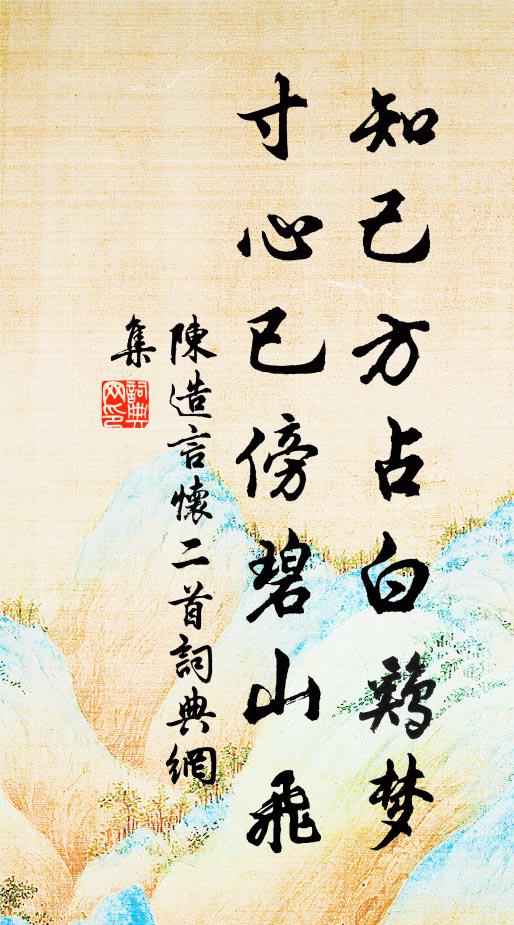 知己方占白鶏梦
寸心已傍碧山飛
陳造言懷二首詞典網
集
詞典網印